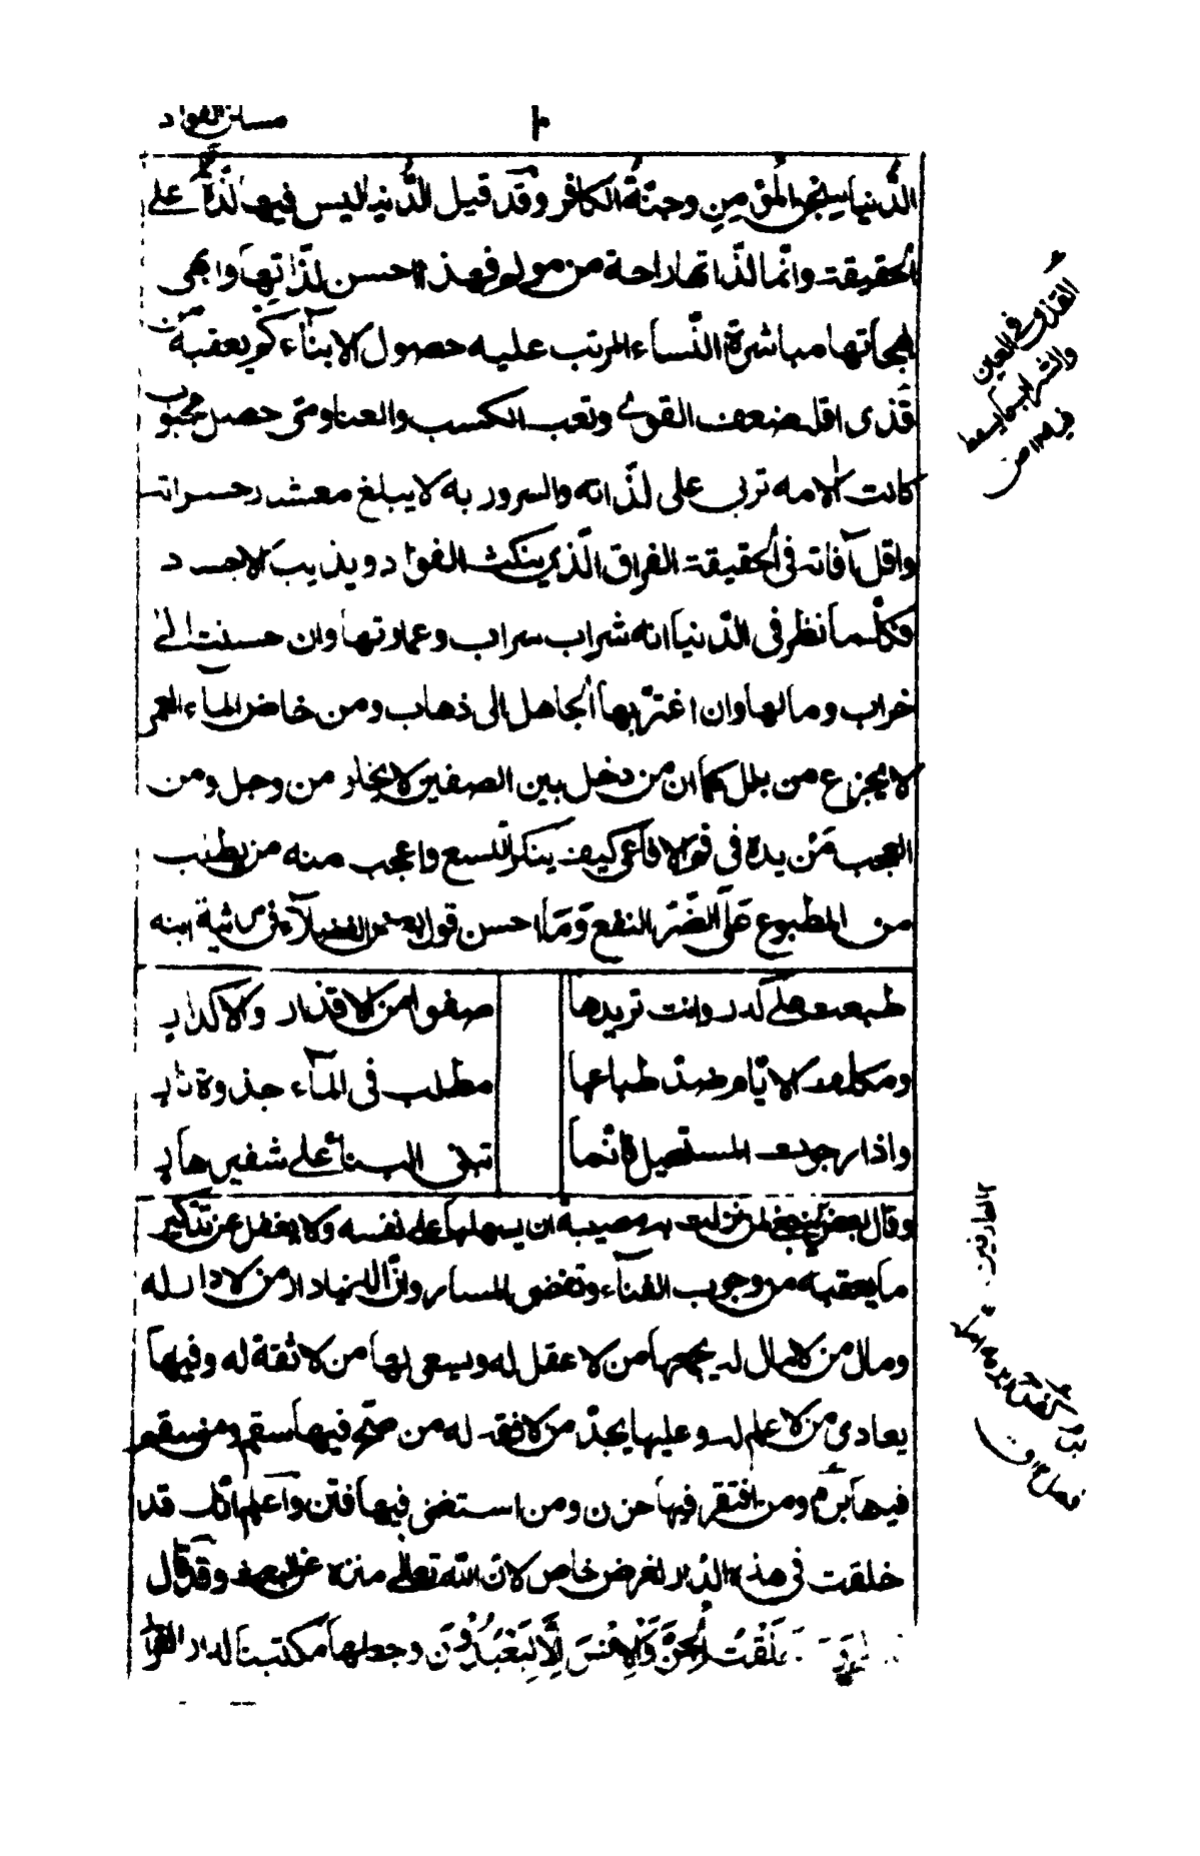 مسكن الفواد
١٠
الدُّنيا سجن المؤمِنِ وجنّةُ الكافر وقد قيل الدُّنيا ليس فيها لذّات على
الحقيقة وانّما لذّاتها راحة من مولم فهذه احسن لذّاتها وابهى
بهجاتها مباشرة النّساء المرتب عليه حصول الابنآء كم يعقبه من
قذى اقله ضعف القوى وتعب الكسب والعنا ومتى حصل محبوب
كانت الامه تربى على لذّاته والسرور به لا يبلغ معشار حسراته
واقل آفاته فى الحقيقة الفراق الّذى ينكث الفواد ويذيب الاجساد
فكلّما نظر فى الدّنيا انه شراب سراب وعمارتها وان حسنت الى
خراب ومالها وان اغترّ بها الجاهل الى ذهاب ومن خاض المآء الغمر
لا يجزع من بلل كما ان من دخل بين الصفين لا يخلو من وجل ومن
العجب من يده فى فم الافاعى كيف ينكر اللسع واعجب منه من يطلب
من المطبوع على الضّر النفع وما احسن قول بعض الفضلآء فى مرثية ابنه
طبعت على كدر وانت تريدها صفوا من الاقذار والاكدار
ومكلف الايّام ضدّ طباعها مطلب فى المآء جذوة نار
واذا رجوت المستحيل فانّما تبنى البنآء على شفير هار
وقال بعض ينبغى لمن نزلت به مصيبة ان يسهلها على نفسه ولا يغفل عن تذكير
ما يعقبه من وجوب الفنآء وتقضى المسار وانّ الدنيا دار من لا دار له
ومال من لا مال له يجمعها من لا عقل له ويسعى لها من لا ثقة له وفيها
يعادى من لا علم له وعليها يحذّ من لا فقه له من صحّ فيها سقم ومن سقم
فيها برم ومن افتقر فيها حزن ومن استغنى فيها فتن واعلم انّك قد
خلقت فى هذه الدّار لغرض خاص لانّ الله تعالى منزه عن العبث وقد قال
خَلَقْتُ الْجِنَّ وَالْإِنْسَ إِلَّا لِيَعْبُدُونِ وجعلها مكتسبا لدار القرار
القذى فى العين
والشراب ما يسقط
فيه ص
العارفين